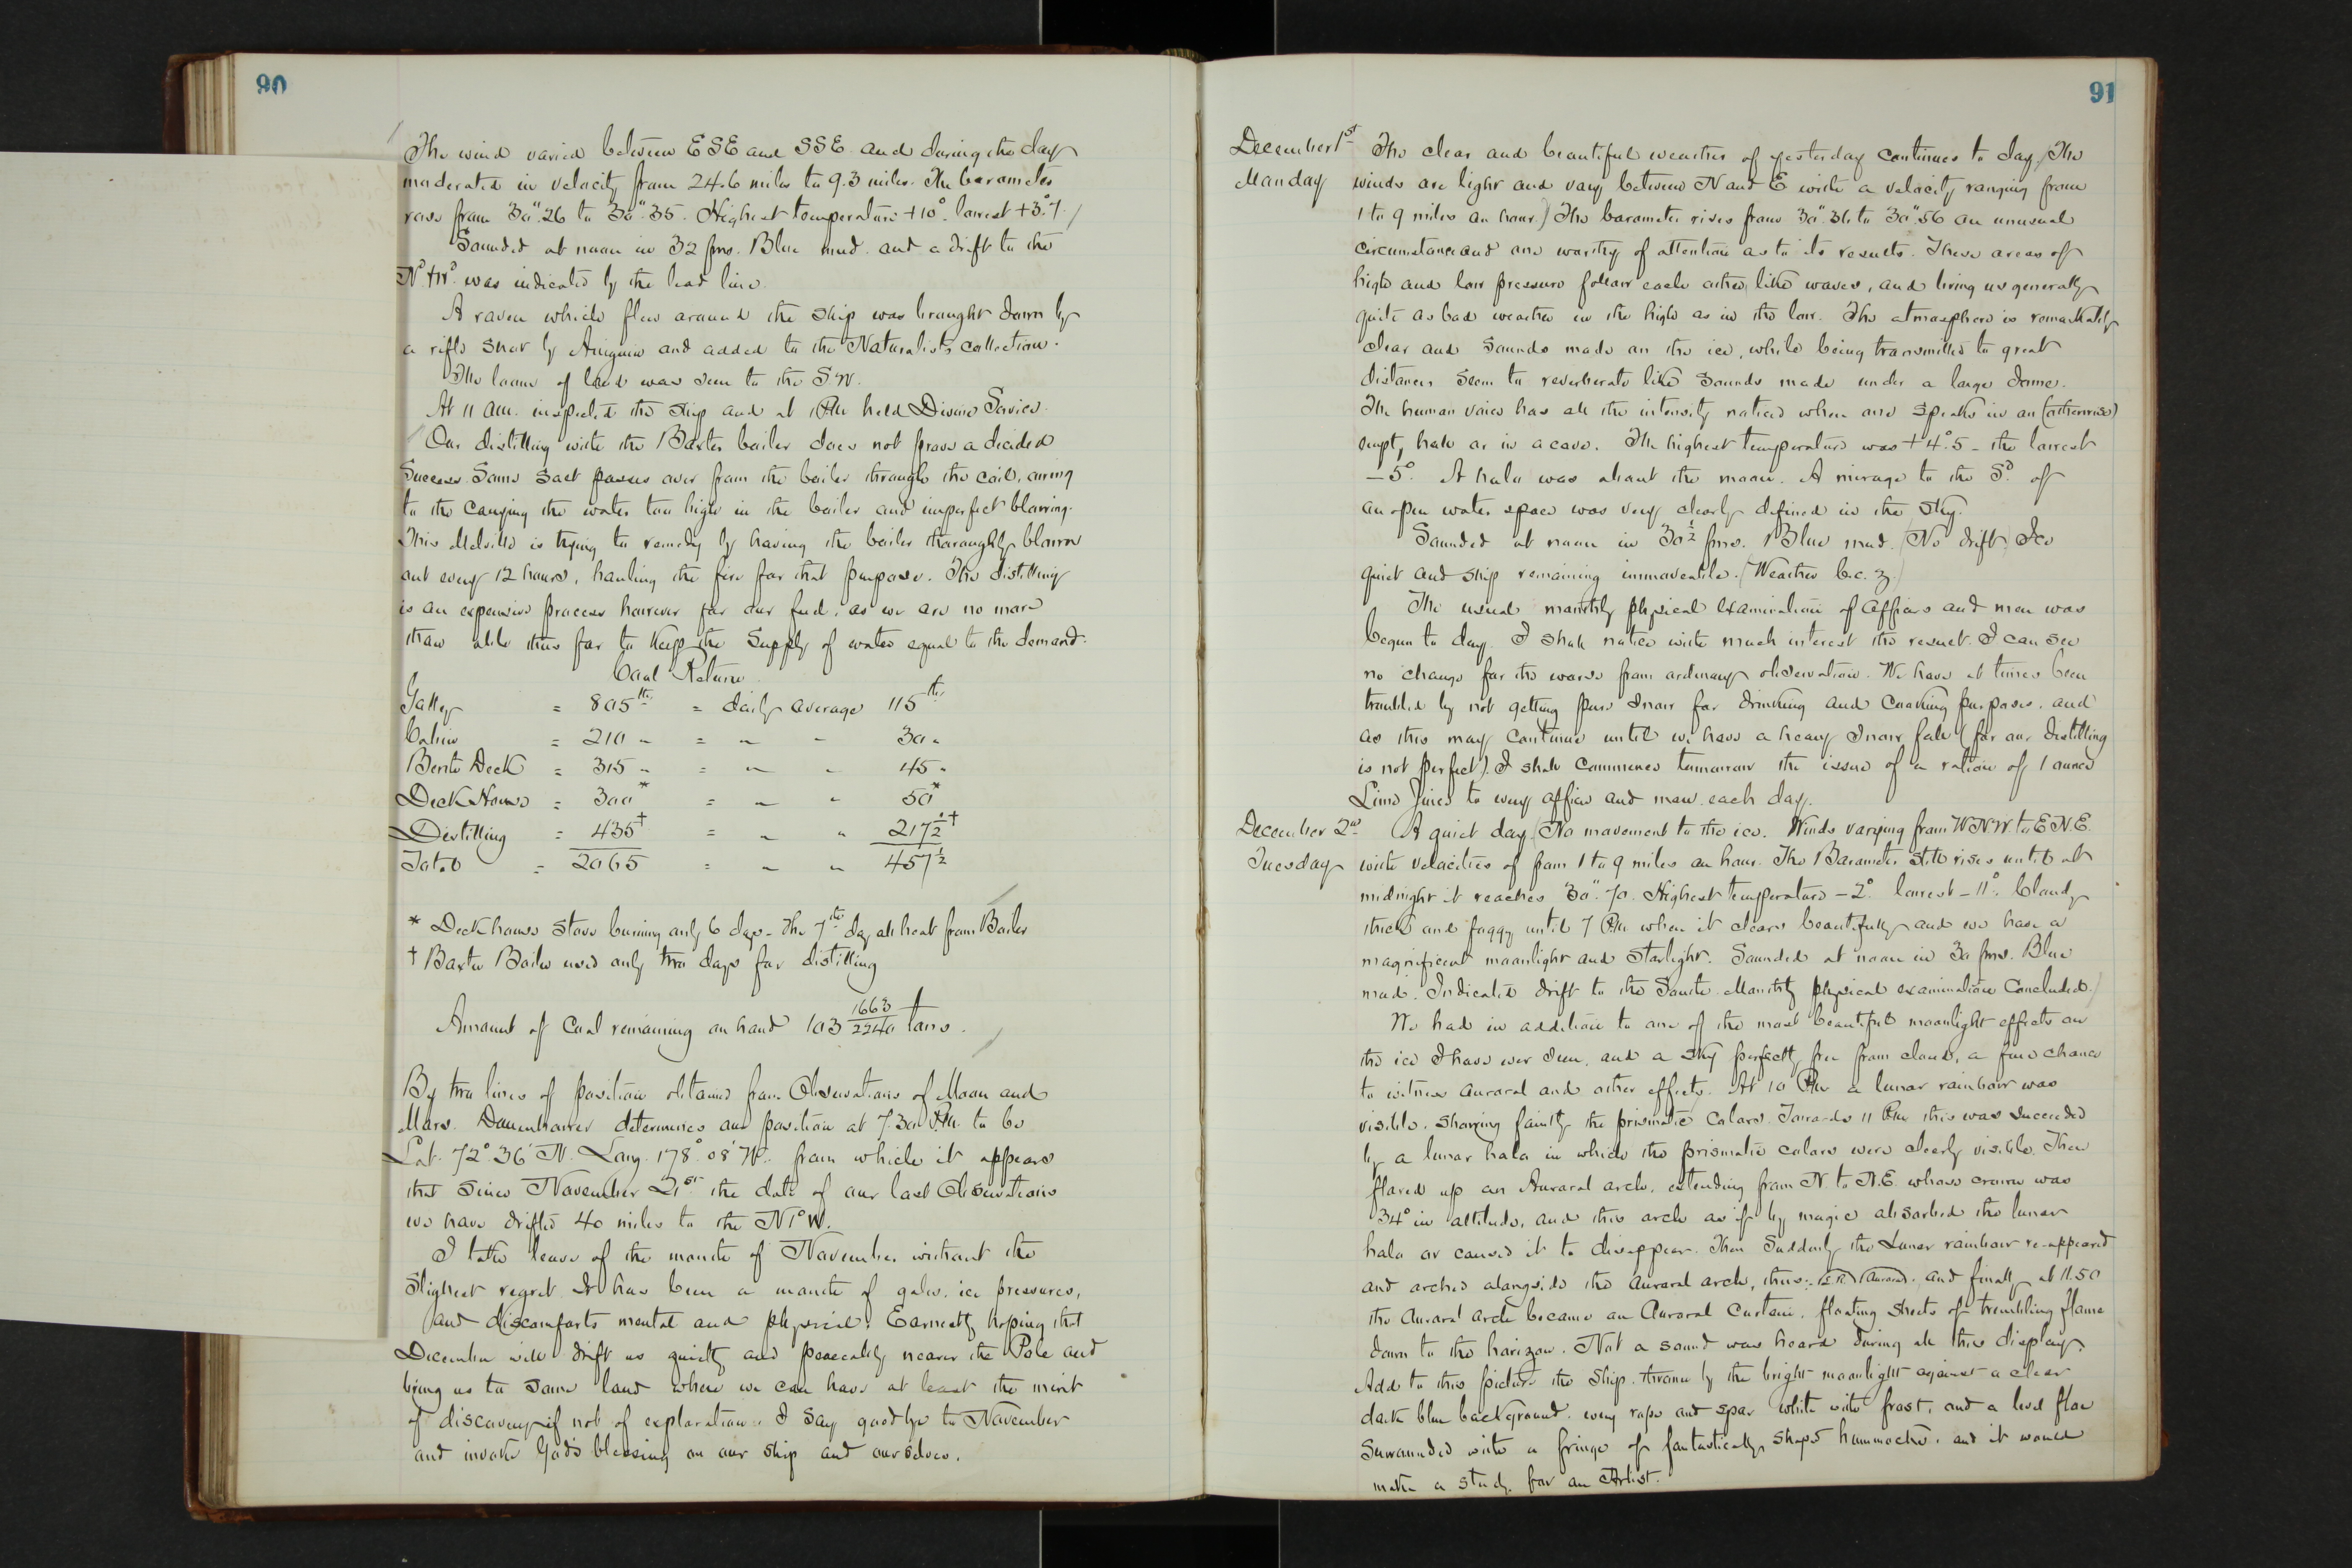 90
The wind varied between ESE and SSE and during the day
moderated in velocity from 24.6 miles to 9.3 miles. The barometer
rose from 30".26 to 30".35. Highest temperature +10° lowest +3°.7.
Sounded at noon in 32 fms. Blue mud. and a drift to the
Nd + Wd was indicated by the lead line.
A raven which flew around the ship was brought down by
a rifle shot by Aneguin and added to the Naturalist's collection.
The loom of land was seen to the S.W.
At 11 am. inspected the ship and at 1 PM held Divine Service.
Our distilling with the Baxter boiler does not prove a decided
Success. Some salt passes over from the boiler through the coil, owing
to the carrying the water too high in the boiler and imperfect blowing.
This Melville is trying to remedy by having the boiler thoroughly blown
out every 12 hours, hauling the fire for that purpose. The distilling
is an expensive process however for our fuel, as we are no more
than able thus far to keep the supply of water equal to the demand.
Coal Return
Galley = 805 lbs = daily average 115 lbs
Cabin = 210 " = " " 30 "
Berth Deck = 315 " = " " 45 "
Deck House = 300* = " " 50*
Distilling = 435† = " " 217½†
Total = 2065 = " " 457½
* Deck house stove burning only 6 days - The 7th day all heat from Boiler
† Baxter Boiler used only two days for distilling
Amount of Coal remaining on hand 103 1663/2240 tons.
By two lines of position obtained from Observations of Moon and
Mars. Danenhower determines our position at 7.30 P.M. to be
Lat. 72° 36' N. Long. 178° 08' W. from which it appears
that since November 21st the date of our last Observations
we have drifted 40 miles to the Nd W.
I take leave of the month of November without the
Slighest regret. It has been a month of gales, ice pressures,
and discomforts mental and physical. Earnestly hoping that
December will drift us quietly and peaceably nearer the Pole and
bring us to some land where we can have at least the merit
of discovery if not of exploration, I say goodbye to November
and invoke God's blessing on our ship and ourselves.
91
December 1st
Monday
The clear and beautiful weather of yesterday continues to day. The
winds are light and vary between N and E with a velocity ranging from
1 to 9 miles an hour.) The barometer rises from 30".36 to 30".56 an unusual
circumstance and one worthy of attention as to its results. These areas of
high and low pressure follow each other like waves, and bring us generally
quite as bad weather in the high as in the low. The atmosphere is remarkably
clear and sounds made on the ice, while being transmitted to great
distances seem to reverberate like sounds made under a large dome.
The human voice has all the intensity noticed when one speaks in an (otherwise)
empty hall or in a cave. The highest temperature was +4°.5 - the lowest
-5°. A halo was about the moon. A mirage to the Sd of
an open water space was very clearly defined in the sky.
Sounded at noon in 30½ fms. Blue mud. (No drift) Ice
quiet and ship remaining immoveable. (Weather b.c.z.)
The usual monthly physical examination of officers and men was
begun to day. I shall notice with much interest the result. I can see
no change for the worse from ordinary observation. We have at times been
troubled by not getting pure snow for drinking and cooking purposes, and
as this may continue until we have a heavy snow fall (for our distilling
is not perfect). I shall commence tomorrow the issue of a ration of 1 ounce
Lime Juice to every officer and man each day.
December 2nd
Tuesday
A quiet day. (No movement to the ice. Winds varying from WNW. to E.N.E.
with velocities of from 1 to 9 miles an hour. The Barometer still rises until at
midnight it reaches 30".70. Highest temperature -2° lowest -11°. Cloudy
thick and foggy until 7 PM when it clears beautifully and we have a
magnificent moonlight and starlight. Sounded at noon in 30 fms. Blue
mud. Indicated drift to the South. Monthly physical examination Concluded.)
We had in addition to one of the most beautiful moonlight effects on
the ice I have ever seen, and a sky perfectly free from cloud, a fine chance
to witness auroral and other effects. At 10 PM a lunar rainbow was
visible, showing faintly the prismatic colors. Towards 11 PM this was succeeded
by a lunar halo in which the prismatic colors were clearly visible. Then
flared up an Auroral arch, extending from N. to N.E. whose crown was
34° in altitude, and this arch as if by magic absorbed the lunar
halo or caused it to disappear. Then Suddenly the Lunar rainbow re-appeared
and arched alongside the auroral arch, thus: (L.R.) (Auroral). and finally at 11.50
the Auroral Arch became an Auroral Curtain, floating sheets of trembling flame
down to the horizon. Not a sound was heard during all this display.
Add to this picture the ship, thrown by the bright moonlight against a clear
dark blue background, every rope and spar white with frost, and a level floe
Surrounded with a fringe of fantastically shaped hummocks, and it would
make a study for an Artist.